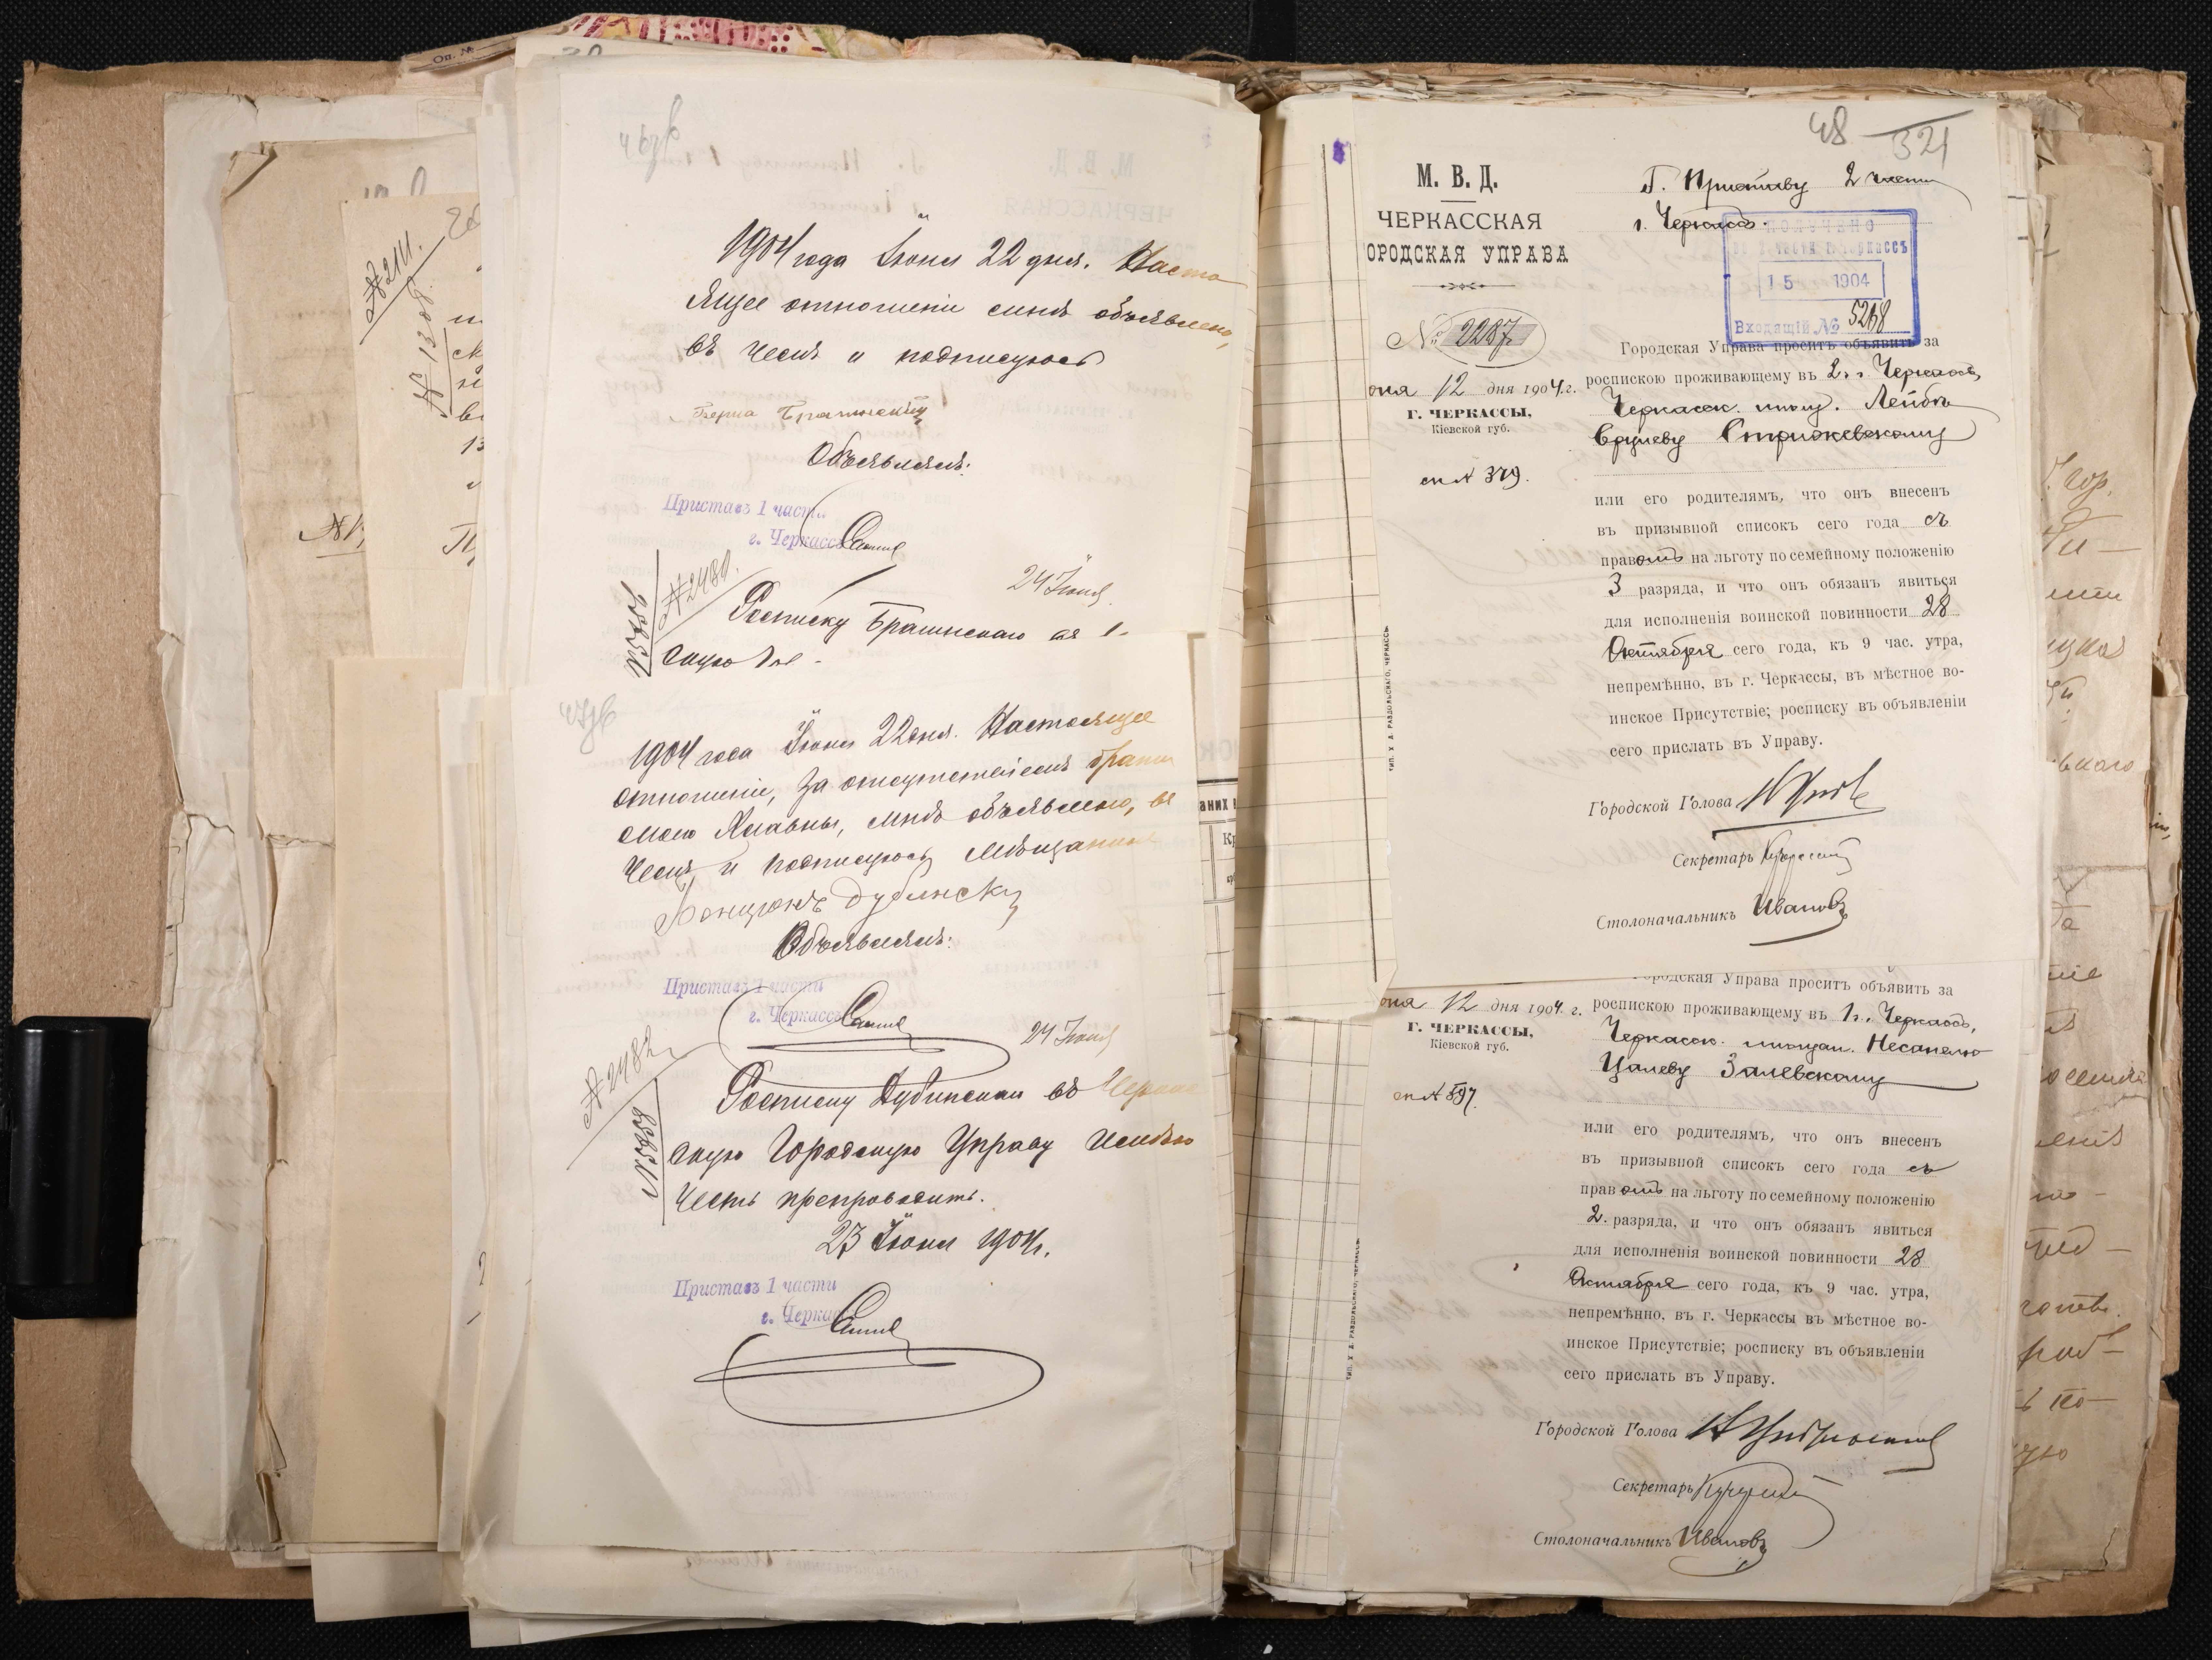 1904 года Іюня 22 дня. Насто
ящее отношеніе мнѣ объявлено,
въ чемъ и подписуюсь
Объявилъ:
Приставъ 1 части
г. Черкассъ
№ 2480.
24 Іюня
Росписку Брашнскаго въ
1904 года Іюня 22 дня. Настоящее
отношеніе, за отсутствіемъ брата
моего Хлавны, мнѣ объявлено, въ
чемъ и подписуюсь мѣщанинъ
Бенціонъ Дубинскій
Объявилъ:
Приставъ 1 части
г. Черкассъ
24 Іюня
№ 2482
Росписку Дубинскаго въ Черкас
скую Городскую Управу имѣю
честь препроводить.
23 Іюня 1904 г.
Приставъ 1 части
г. Черкассъ
48
321
М. В. Д.
ЧЕРКАССКАЯ
ОРОДСКАЯ УПРАВА
№ 2287
юня 12 дня 1904 г.
Г. ЧЕРКАССЫ,
Кіевской губ.
сп № 379.
Г. Приставу 2 части
г. Черкассъ.
ПОЛУЧЕНО
15 1904
Входящій № 5268
Городская Управа проситъ объявить за
роспискою проживающему въ 2 ч. г. Черкассъ,
Черкасск. мѣщ. Лейбѣ
Срулеву Стрижевскому
или его родителямъ, что онъ внесенъ
въ призывной списокъ сего года съ
правомъ на льготу по семейному положенію
3 разряда, и что онъ обязанъ явиться
для исполненія воинской повинности 28
Октября сего года, къ 9 час. утра,
непремѣнно, въ г. Черкассы, въ мѣстное во-
инское Присутствіе; росписку въ объявленіи
сего прислать въ Управу.
Городской Голова
Секретарь
Столоначальникъ Ивановъ
ородская Управа проситъ объявить за
юня 12 дня 1904 г.
роспискою проживающему въ 1 ч. г. Черкассъ,
Г. ЧЕРКАССЫ,
Кіевской губ.
Черкасск. мѣщан. Несанелю
Цалеву Залевскому
сп № 597.
или его родителямъ, что онъ внесенъ
въ призывной списокъ сего года съ
правомъ на льготу по семейному положенію
2. разряда, и что онъ обязанъ явиться
для исполненія воинской повинности 28
Октября сего года, къ 9 час. утра,
непремѣнно, въ г. Черкассы въ мѣстное во-
инское Присутствіе; росписку въ объявленіи
сего прислать въ Управу.
Городской Голова
Секретарь
Столоначальникъ Ивановъ